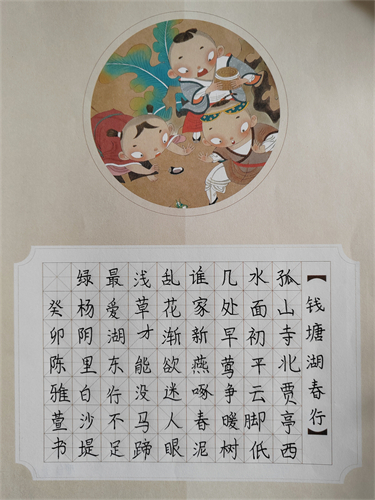 【钱塘湖春行】
孤山寺北贾亭西
水面初平云脚低
几处早莺争暖树
谁家新燕啄春泥
乱花渐欲迷人眼
浅草才能没马蹄
最爱湖东行不足
绿杨阴里白沙堤
癸卯陈雅萱书